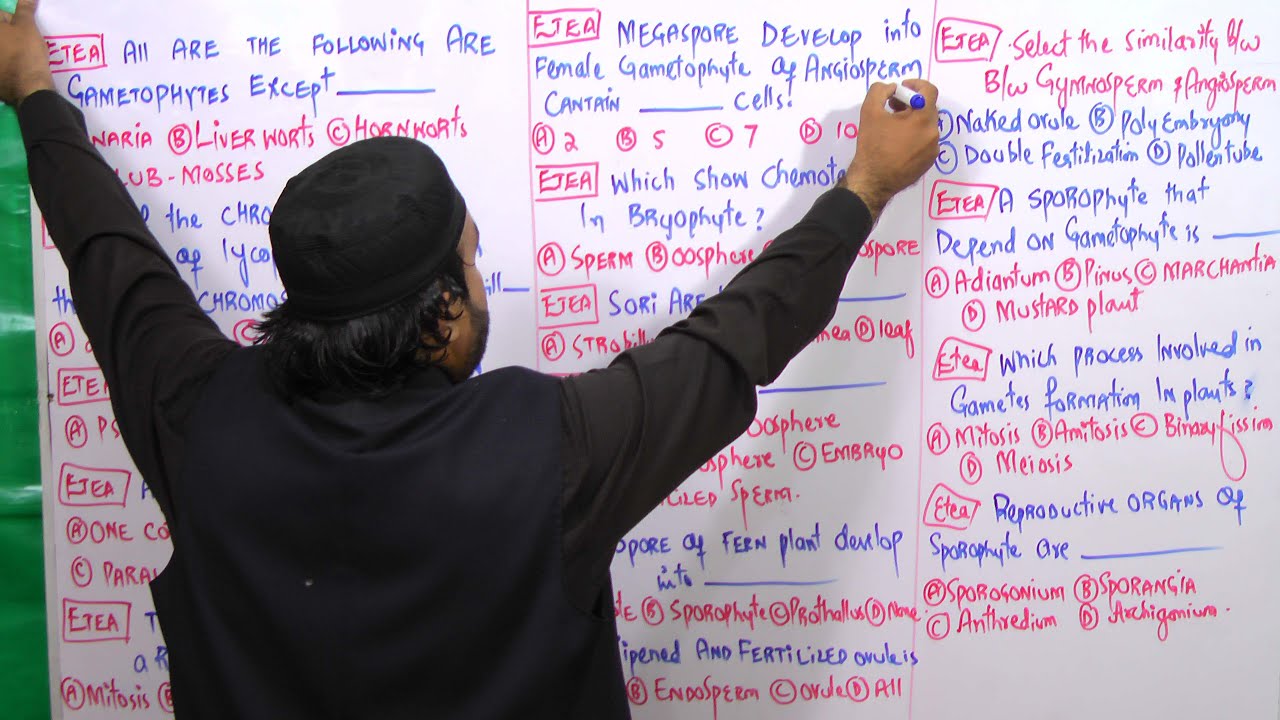 ETEA All ARE THE FOLLOWING ARE
GAMETOPHYTES EXCEPT ______
NARIA Ⓑ LIVER WORTS Ⓒ HORNWORTS
LUB-MOSSES
the CHRO
of lyco
CHROMOS ill__
Ⓐ
ETE
Ⓐ PS
ETEA
Ⓐ ONE CO
Ⓒ PARA
ETEA T
a R
Ⓐ Mitosis
ETEA MEGASPORE DEVELOP into
Female Gametophyte of ANGIOSPERM
CANTAIN ______ Cells!
Ⓐ 2 Ⓑ 5 Ⓒ 7 Ⓓ 10
ETEA Which Show Chemota
In BRyophyte?
Ⓐ SPERM Ⓑ oosphere SPORE
ETEA SORI ARE ______
Ⓐ STRobil Ⓓ leaf
______
oosphere
osphere Ⓒ EMBRYO
SPERM.
PORE of FERN plant develop
into ______
Ⓑ Sporophyte Ⓒ Prothallus Ⓓ None
ipened AND FERTILIZED ovule is
Ⓑ ENDOSPERM Ⓒ ovule Ⓓ All
ETEA Select the similarity b/w
B/w GYMNOSPERM & Angiosperm
Naked ovule Ⓑ Poly Embryony
Ⓒ Double Fertilization Ⓓ Pollen tube
ETEA A SPOROPHYTE that
Depend ON Gametophyte is ______
Ⓐ Adiantum Ⓑ Pinus Ⓒ MARCHANTIA
Ⓓ MUSTARD plant
Etea Which PROCESS Involved in
Gametes formation In plants?
Ⓐ Mitosis Ⓑ Amitosis Ⓒ Binary fission
Ⓓ Meiosis
Etea Reproductive ORGANS of
Sporophyte are ______
Ⓐ SPOROGONIUM Ⓑ SPORANGIA
Ⓒ Anthredium Ⓓ Archigonium.